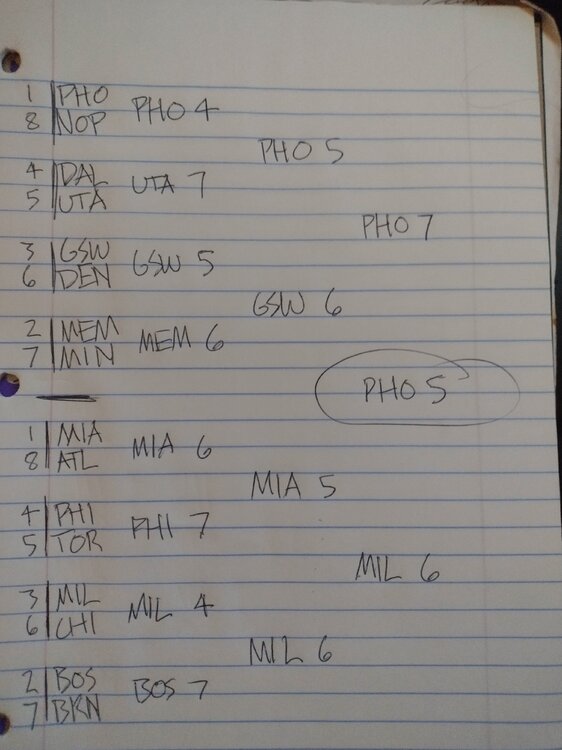 1 PHO
8 NOP
PHO 4
PHO 5
4 DAL
5 UTA
UTA 7
PHO 7
3 GSW
6 DEN
GSW 5
GSW 6
2 MEM
7 MIN
MEM 6
PHO 5
1 MIA
8 ATL
MIA 6
MIA 5
4 PHI
5 TOR
PHI 7
MIL 6
3 MIL
6 CHI
MIL 4
MIL 6
2 BOS
7 BKN
BOS 7